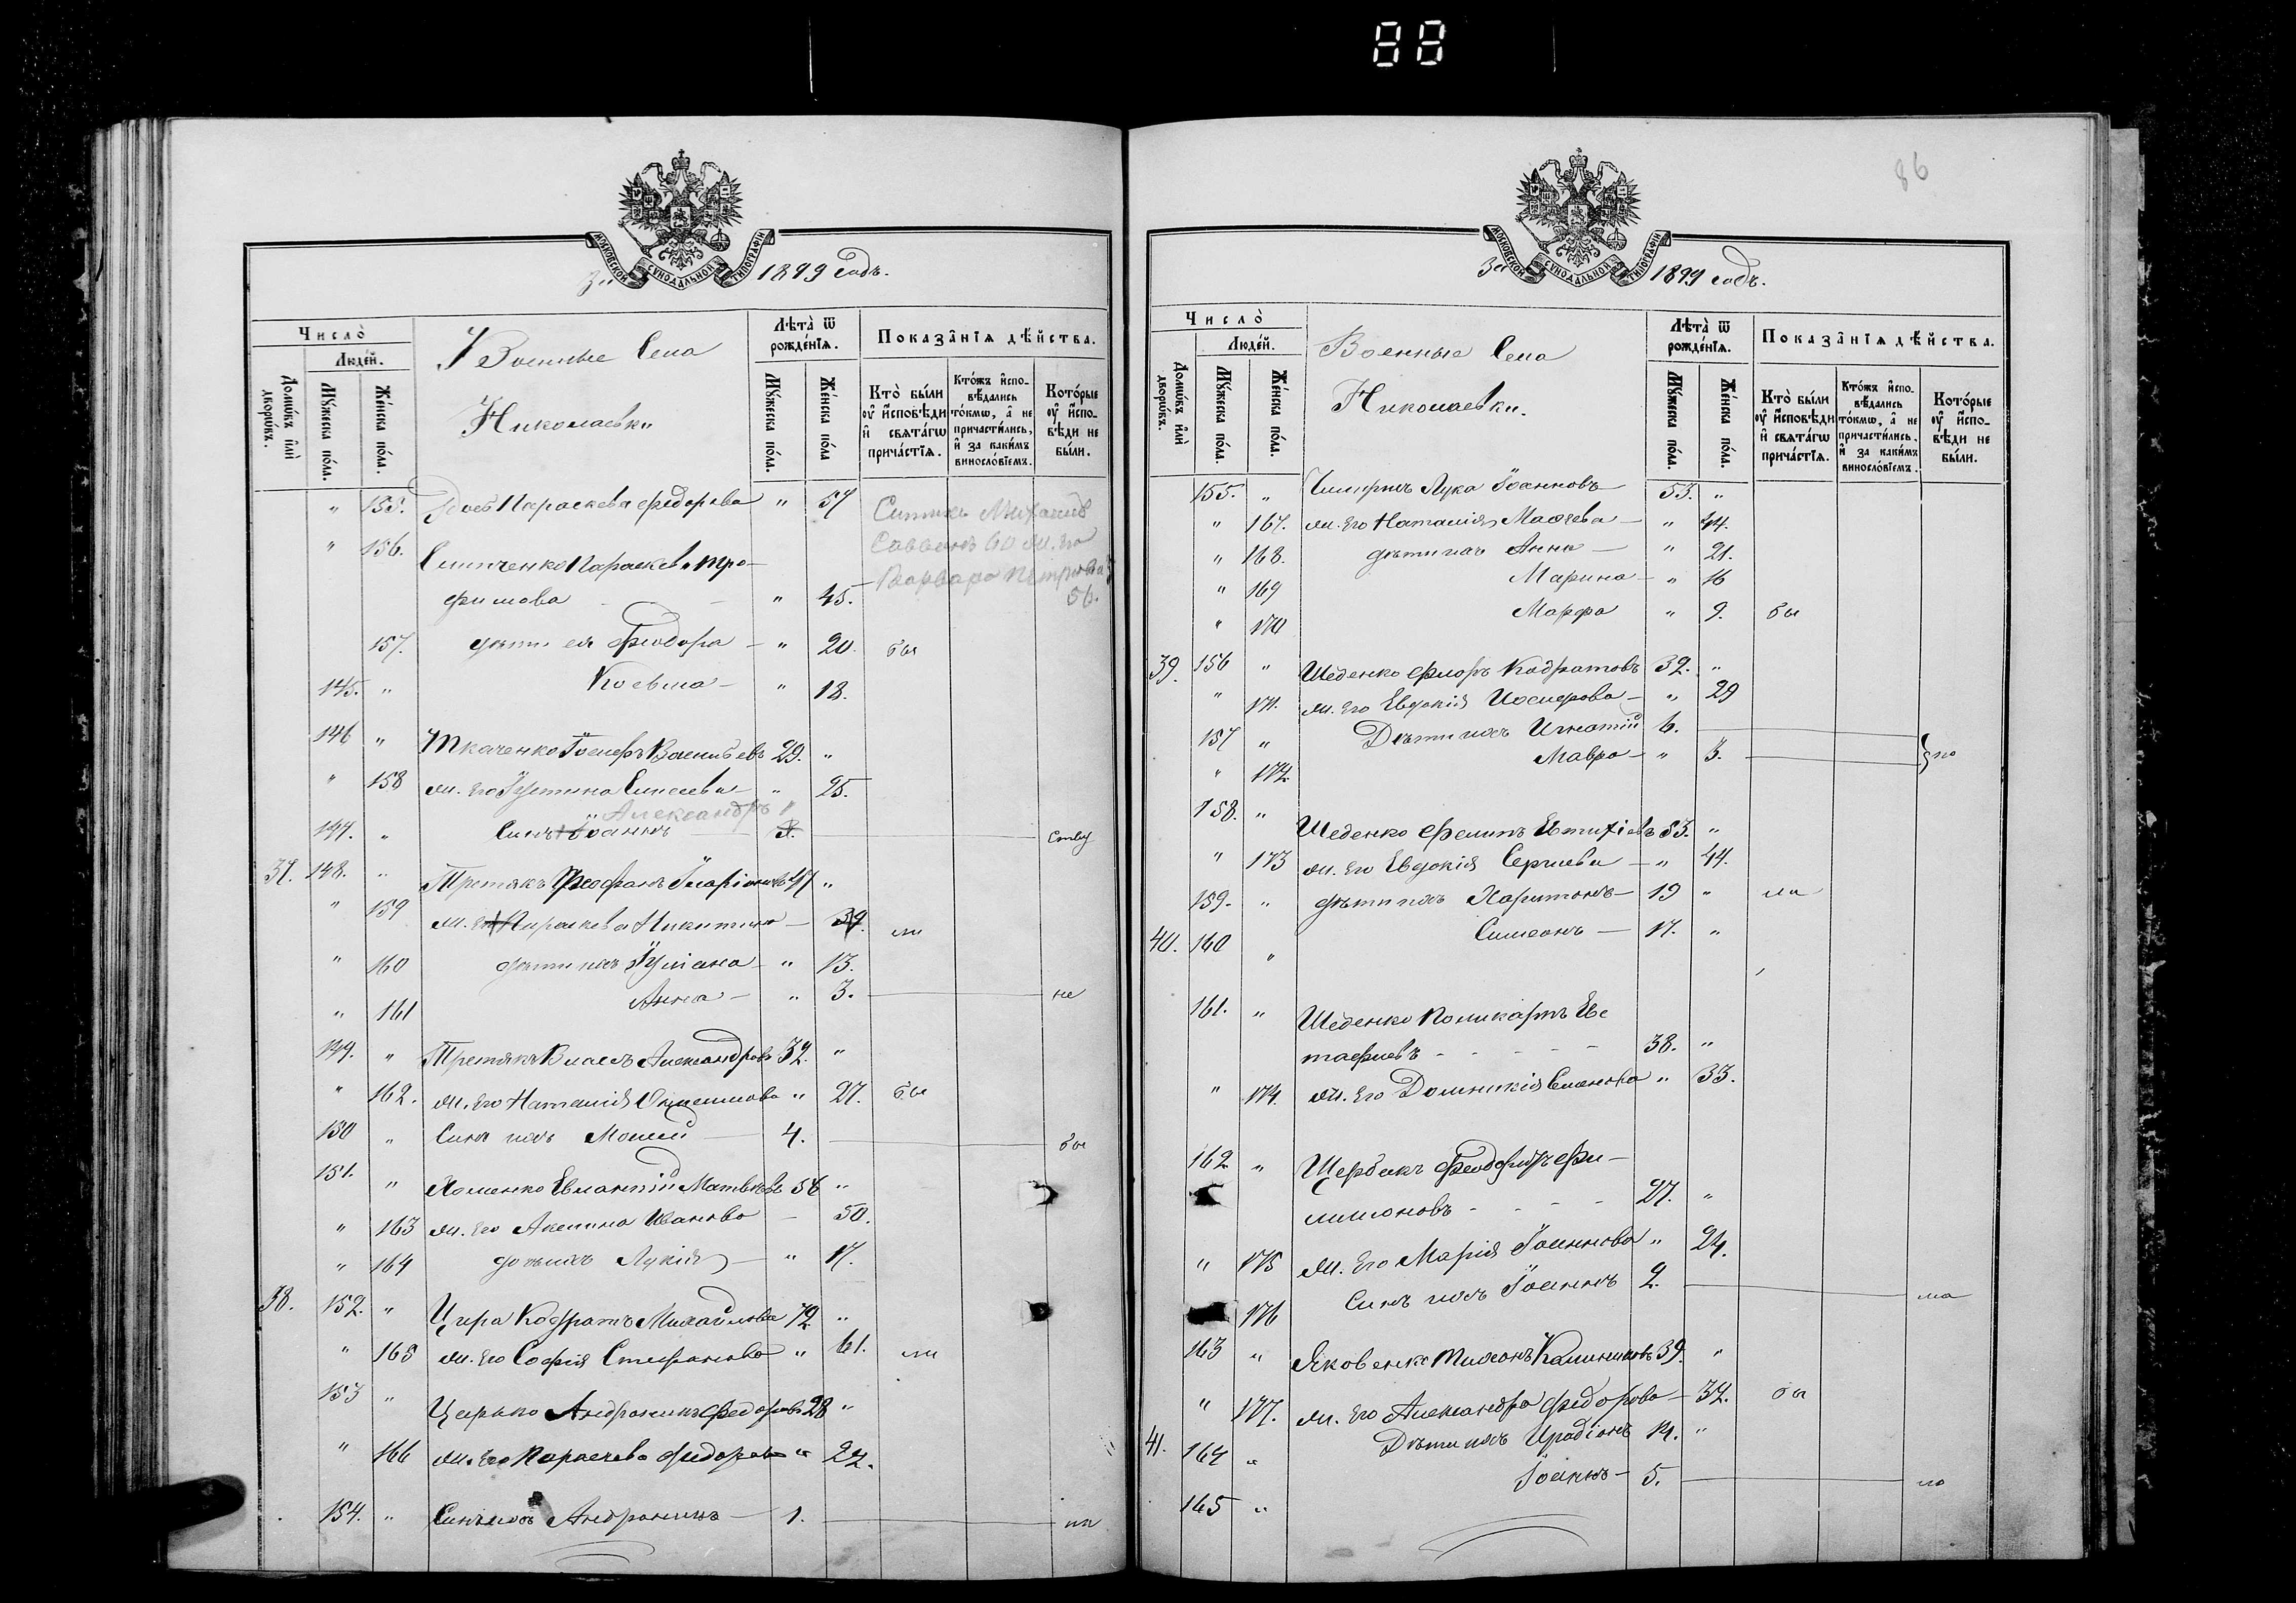 88
86
МОСКОВСКОЙ СѴНОДАЛЬНОЙ ТИПОГРАФІИ
За 1899 годъ.
Число̀
Людéй.
Домѡ́въ и҆лѝ дворѡ́въ.
Мꙋ́жеска по́ла.
Же́нска по́ла.
Военные Села
Николаевки
Лѣта̀ ѿ рожде́нїѧ.
Мꙋ́жеска по́ла.
Же́нска по́ла
Показа̑нїѧ дѣ́йства.
Кто̀ бы́ли ᲂу҆ и҆́сповѣди и҆ свѧта́гѡ прича́стїѧ.
Кто́жъ и҆спо-вѣ́дались то́кмѡ, а҆ не причасти́лись, и҆ за каки́мъ винослόвїемъ.
Кото́рые ᲂу҆ и҆́спо-вѣди не бы́ли.
" 155. Вдов Параскева Федорова " 57
Михаилъ
Саввинъ 60 ж. его
Варвара Петрова
56.
" 156. Параскева Тро-
фимова - - " 45.
157. дѣти ея Феодора - " 20. бы
145. " Косьма - " 18.
146 " Ткаченко Іосифъ Васильевъ 29. "
" 158 ж. его Іустина Елисеева " 25.
Александръ 1
147. " Сынъ Іоаннъ
37. 148. " Третякъ Феофанъ Иларіоновъ 47 "
" 159 ж. его Параскева Никитина - 39. ли
" 160 дѣти ихъ Іуліана - " 13.
" 161 Анна - " 3. не
149. " Третякъ Власъ Александровъ 32. "
" 162. ж. его Наталія " 27. бы
150 " Сынъ ихъ Моисей 4. бы
151. " Хоменко Евлампій Матвѣевъ 56 "
" 163 ж. его Акилина Иванова - 50.
" 164 дочь ихъ Лукія - " 17.
38. 152. " Цира Кодратъ Михайловъ 72 "
" 165 ж. его Софія Стефанова " 61. ли
153 " Царько Андроникъ Федоровъ 28 "
" 166 ж. его Параскева Федорова " 24.
154. " Сынъ ихъ Андроникъ - 1. ли
За 1899 годъ.
МОСКОВСКОЙ СѴНОДАЛЬНОЙ ТИПОГРАФІИ
Число̀
Людéй.
Домѡ́въ и҆лѝ дворѡ́въ.
Мꙋ́жеска по́ла.
Же́нска по́ла.
Военные Села
Николаевки.
Лѣта̀ ѿ рожде́нїѧ.
Мꙋ́жеска по́ла.
Же́нска по́ла.
Показа̑нїѧ дѣ́йства.
Кто̀ бы́ли ᲂу҆ и҆́сповѣди и҆ свѧта́гѡ прича́стїѧ.
Кто́жъ и҆спо-вѣ́дались то́кмѡ, а҆ не причасти́лись, и҆ за каки́мъ винослόвїемъ.
Кото́рые ᲂу҆ и҆́спо-вѣди не бы́ли.
155. " Лука Іоанновъ 53. "
" 167. ж. его Наталія - " 44.
" 168. дѣти ихъ Анна - " 21.
" 169 Марина - " 16
" 170 Марфа " 9. бы
39. 156 " Шеденко Флоръ Кодратовъ 32. "
" 171. ж. его Евдокія Іосифова - " 29
157 " Дѣти ихъ Игнатій 6.
" 172. Мавра - " 3. ло
158. " Шеденко Филипъ Евтихіевъ 53. "
" 173 ж. его Евдокія Сергиева - " 44.
159. " дѣти ихъ Харитонъ - 19 " ли
40. 160 " Симеонъ - 17. "
161. " Шеденко Поликарпъ Ев
тафиевъ - - - - - 38. "
" 174. ж. его Домникія " 33.
162 " Щербакъ Фи-
лимоновъ - - - - 27. "
" 175 ж. его Марія Іоаннова " 24.
176 Сынъ ихъ Іоаннъ 2. ли
163 " Яковенко Калинниковъ 39. "
" 177. ж. его Александра Федорова - 37. бы
41. 164 " Дѣти ихъ Иродіонъ 14. "
165 " Іоаннъ - 5. ло